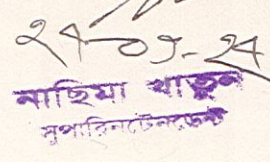 ২৭-০৯-২৪
নাছিমা খাতুন
সুপারিনটেনডেন্ট